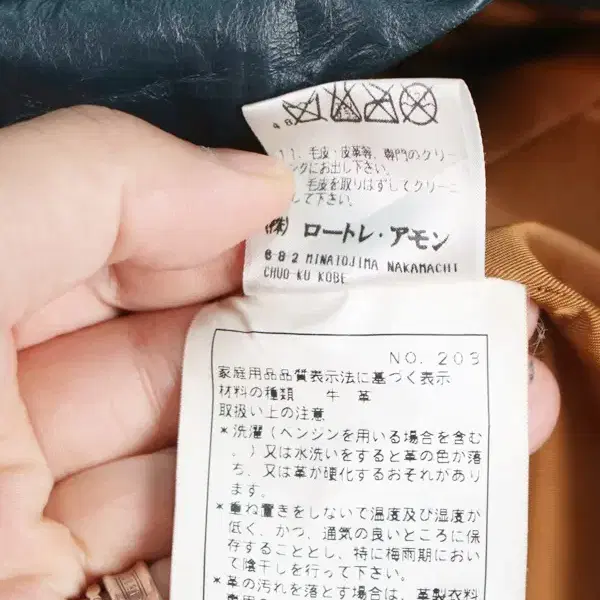 48
1、毛皮・皮革等、専門のクリー
ングにお出し下さい。
毛皮を取りはずしてクリーニ
して下さい。
(株) ロートレ・アモン
6 8 2 MINATOJIMA NAKAMACHI
CHUO-KU KOBE
NO. 203
家庭用品品質表示法に基づく表示
材料の種類 牛 革
取扱い上の注意
*洗濯(ベンジンを用いる場合を含む
。)又は水洗いをすると革の色が落
ち、又は革が硬化するおそれがあり
ます。
*重ね置きをしないで温度及び湿度が
低く、かつ、通気の良いところに保
存することとし、特に梅雨期におい
て陰干しを行って下さい。
*革の汚れを落とす場合は、革製衣料